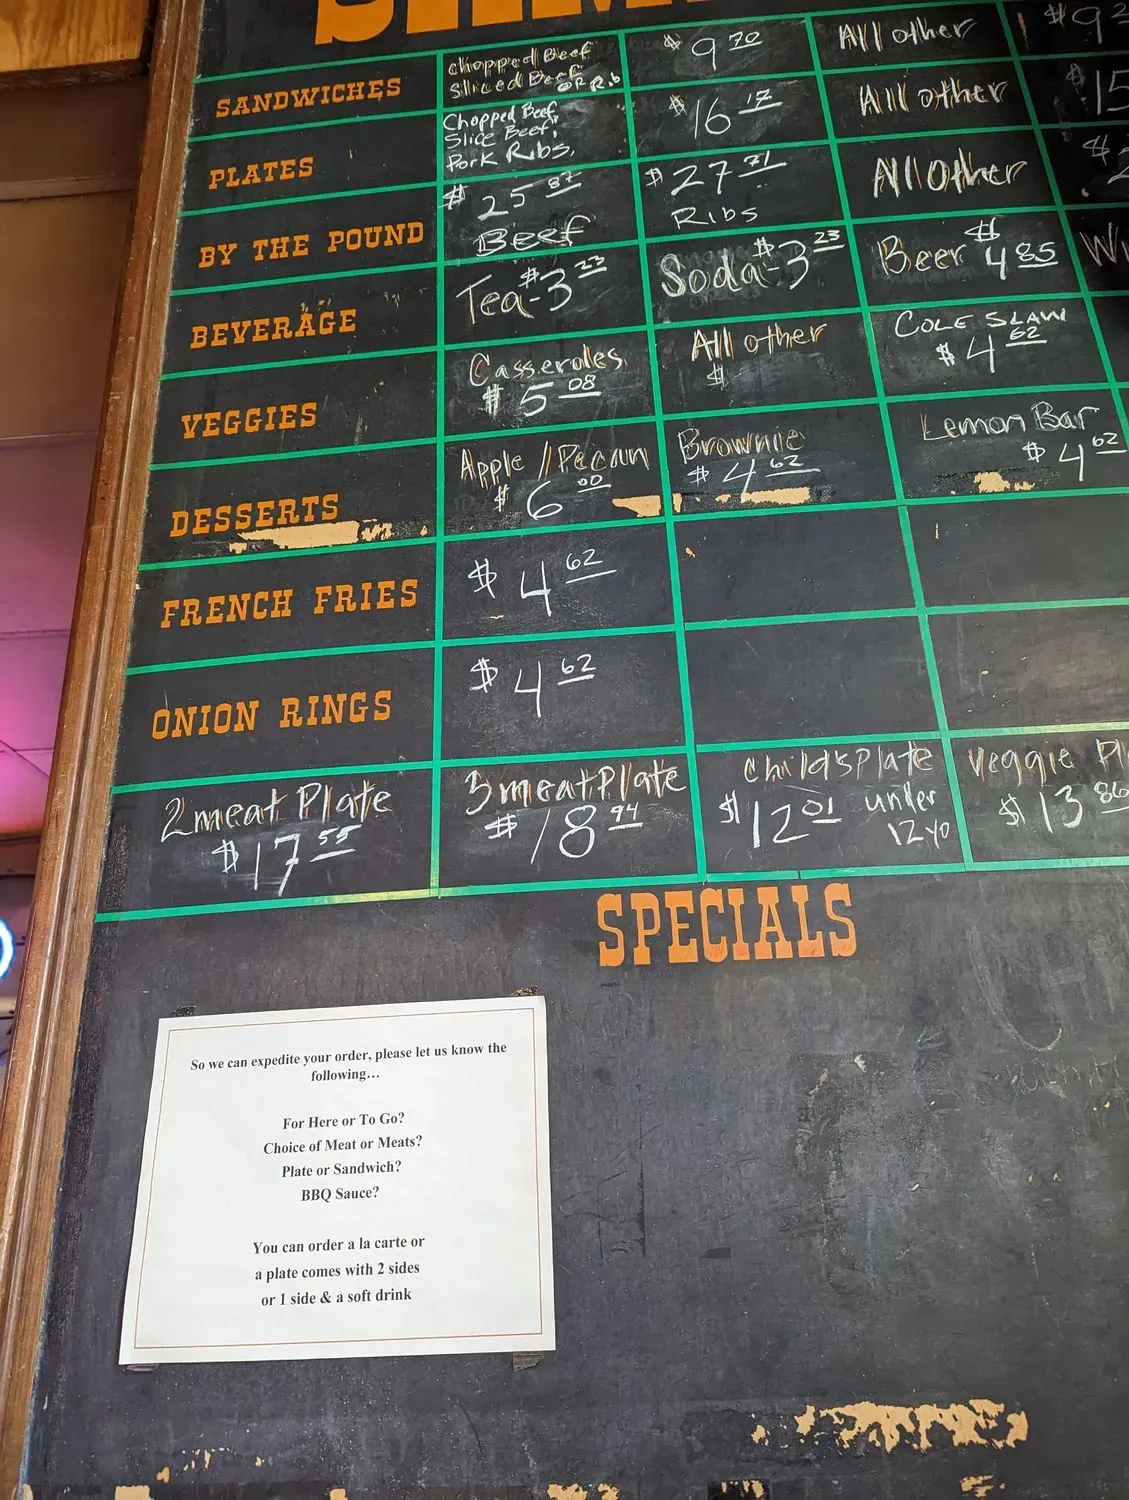 SANDWICHES
chopped Beef
Sliced Beef
OR Rib
$9.70
All other
PLATES
Chopped Beef,
Slice Beef,
Pork Ribs,
$16.17
All other
BY THE POUND
$25.87
Beef
$27.71
Ribs
All Other
BEVERAGE
Tea-$3.23
Soda-$3.23
Beer $4.85
VEGGIES
Casseroles
$5.08
All other
$
COLE SLAW
$4.62
DESSERTS
Apple / Pecan
$6.00
Brownie
$4.62
Lemon Bar
$4.62
FRENCH FRIES
$4.62
ONION RINGS
$4.62
2 meat Plate
$17.55
3 meat Plate
$18.94
Child's Plate
$12.01 under
12 yo
Veggie Pl
$13.86
SPECIALS
So we can expedite your order, please let us know the
following...
For Here or To Go?
Choice of Meat or Meats?
Plate or Sandwich?
BBQ Sauce?
You can order a la carte or
a plate comes with 2 sides
or 1 side & a soft drink